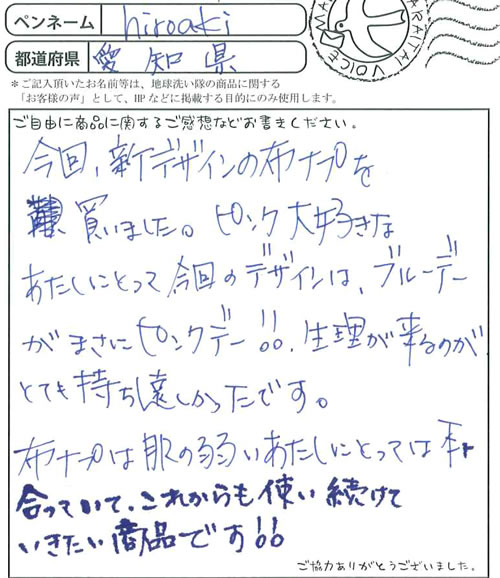 ペンネーム hiroaki
都道府県 愛知県
ARAITAI VOICE
*ご記入頂いたお名前等は、地球洗い隊の商品に関する
「お客様の声」として、HPなどに掲載する目的にのみ使用します。
ご自由に商品に関するご感想などお書きください。
今回、新デザインの布ナプを
買いました。ピンク大好きな
あたしにとって今回のデザインは、ブルーデー
がまさにピンクデー!!、生理が来るのが
とても持ち遠しかったです。
布ナプは肌の弱いあたしにとっては
合っていて、これからも使い続けて
いきたい商品です!!
ご協力ありがとうございました。